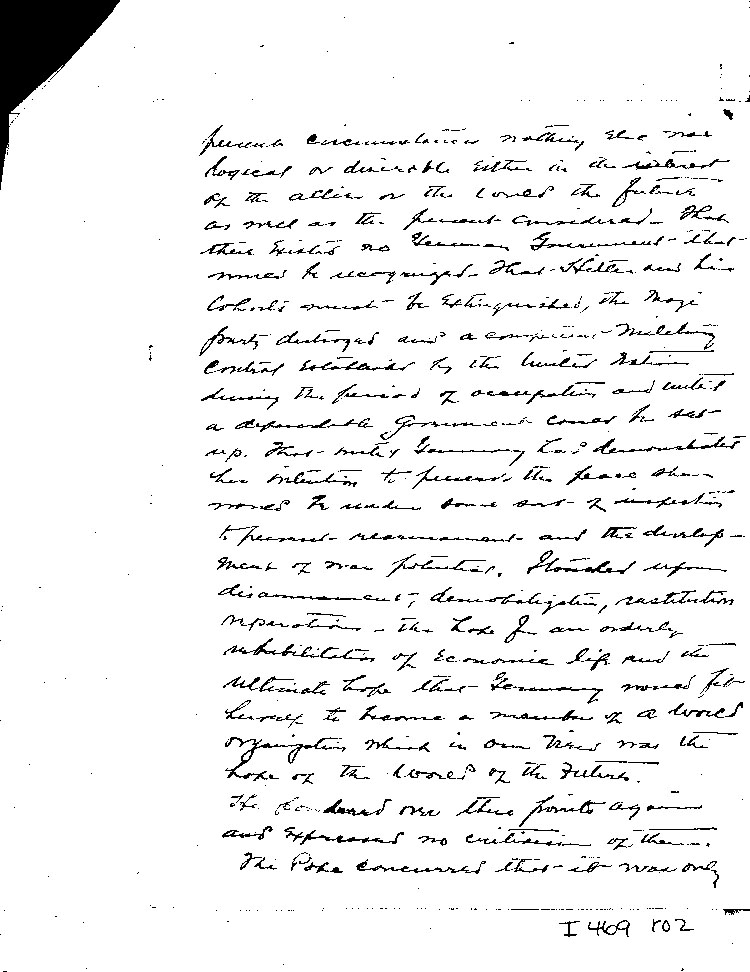 present circumstances nothing else was
logical or desirable either in the interest
of the allies or the world the future
as well as the present considered. That
there existed no German Government that
would be recognized. That Hitler and his
Cohorts must be extinguished, the Nazi
party destroyed and a competent Military
Control established by the United Nations
during the period of occupation and until
a dependable Government could be set
up. That until Germany had demonstrated
her intention to preserve the peace she
would be under some sort of inspection
to prevent rearmament and the develop-
ment of war potential. I touched upon
disarmament, demobilization, restitution
reparations - the hope for an orderly
rehabilitation of Economic life and the
Ultimate hope that Germany would fit
herself to become a member of a World
Organization which in our View was the
hope of the World of the Future.
He pondered over these points again
and Expressed no criticism of them.
The Pope concurred that it was only
I 469 r02